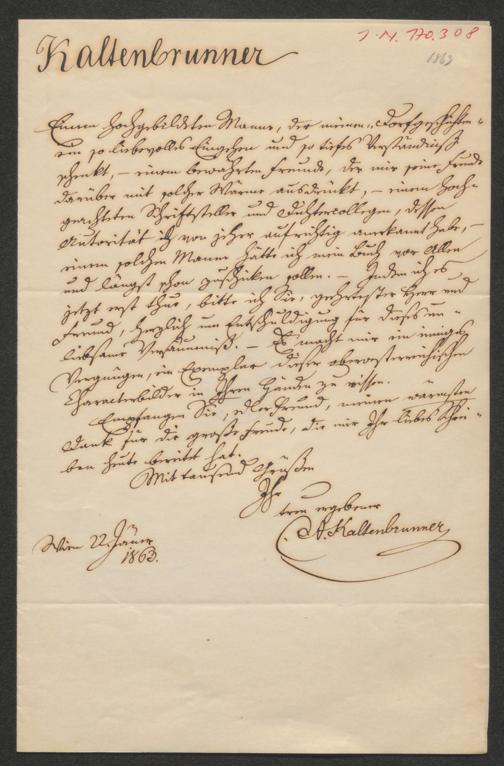 Kaltenbrunner
I. N. 170.308
1863
Einem hochgebildeten Manne, der meinen „Dorfgeschichten“
ein so liebevolles Eingehen und so tiefes Verständniß
schenkt, – einem bewährten Freunde, der mir seine Freude
darüber mit solcher Wärme ausdrückt, – einem hoch-
geachteten Schriftsteller und Dichtercollegen, dessen
Autorität ich von jeher aufrichtig anerkannt habe, –
einem solchen Manne hätte ich mein Buch vor Allen
und längst schon zuschicken sollen. – Indem ich es
jetzt erst thue, bitte ich Sie, geehrtester Herr und
Freund, herzlich um Entschuldigung für dieses un-
liebsame Versäumniß. – Es macht mir ein inniges
Vergnügen, ein Exemplar dieser oberösterreichischen
Characterbilder in Ihren Händen zu wissen.
Empfangen Sie, edler Freund, meinen wärmsten
Dank für die große Freude, die mir Ihr liebes Schrei-
ben heute bereitet hat.
Mit tausend Grüßen
Ihr
treu ergebener
A. Kaltenbrunner
Wien 22. Jäner
1863.